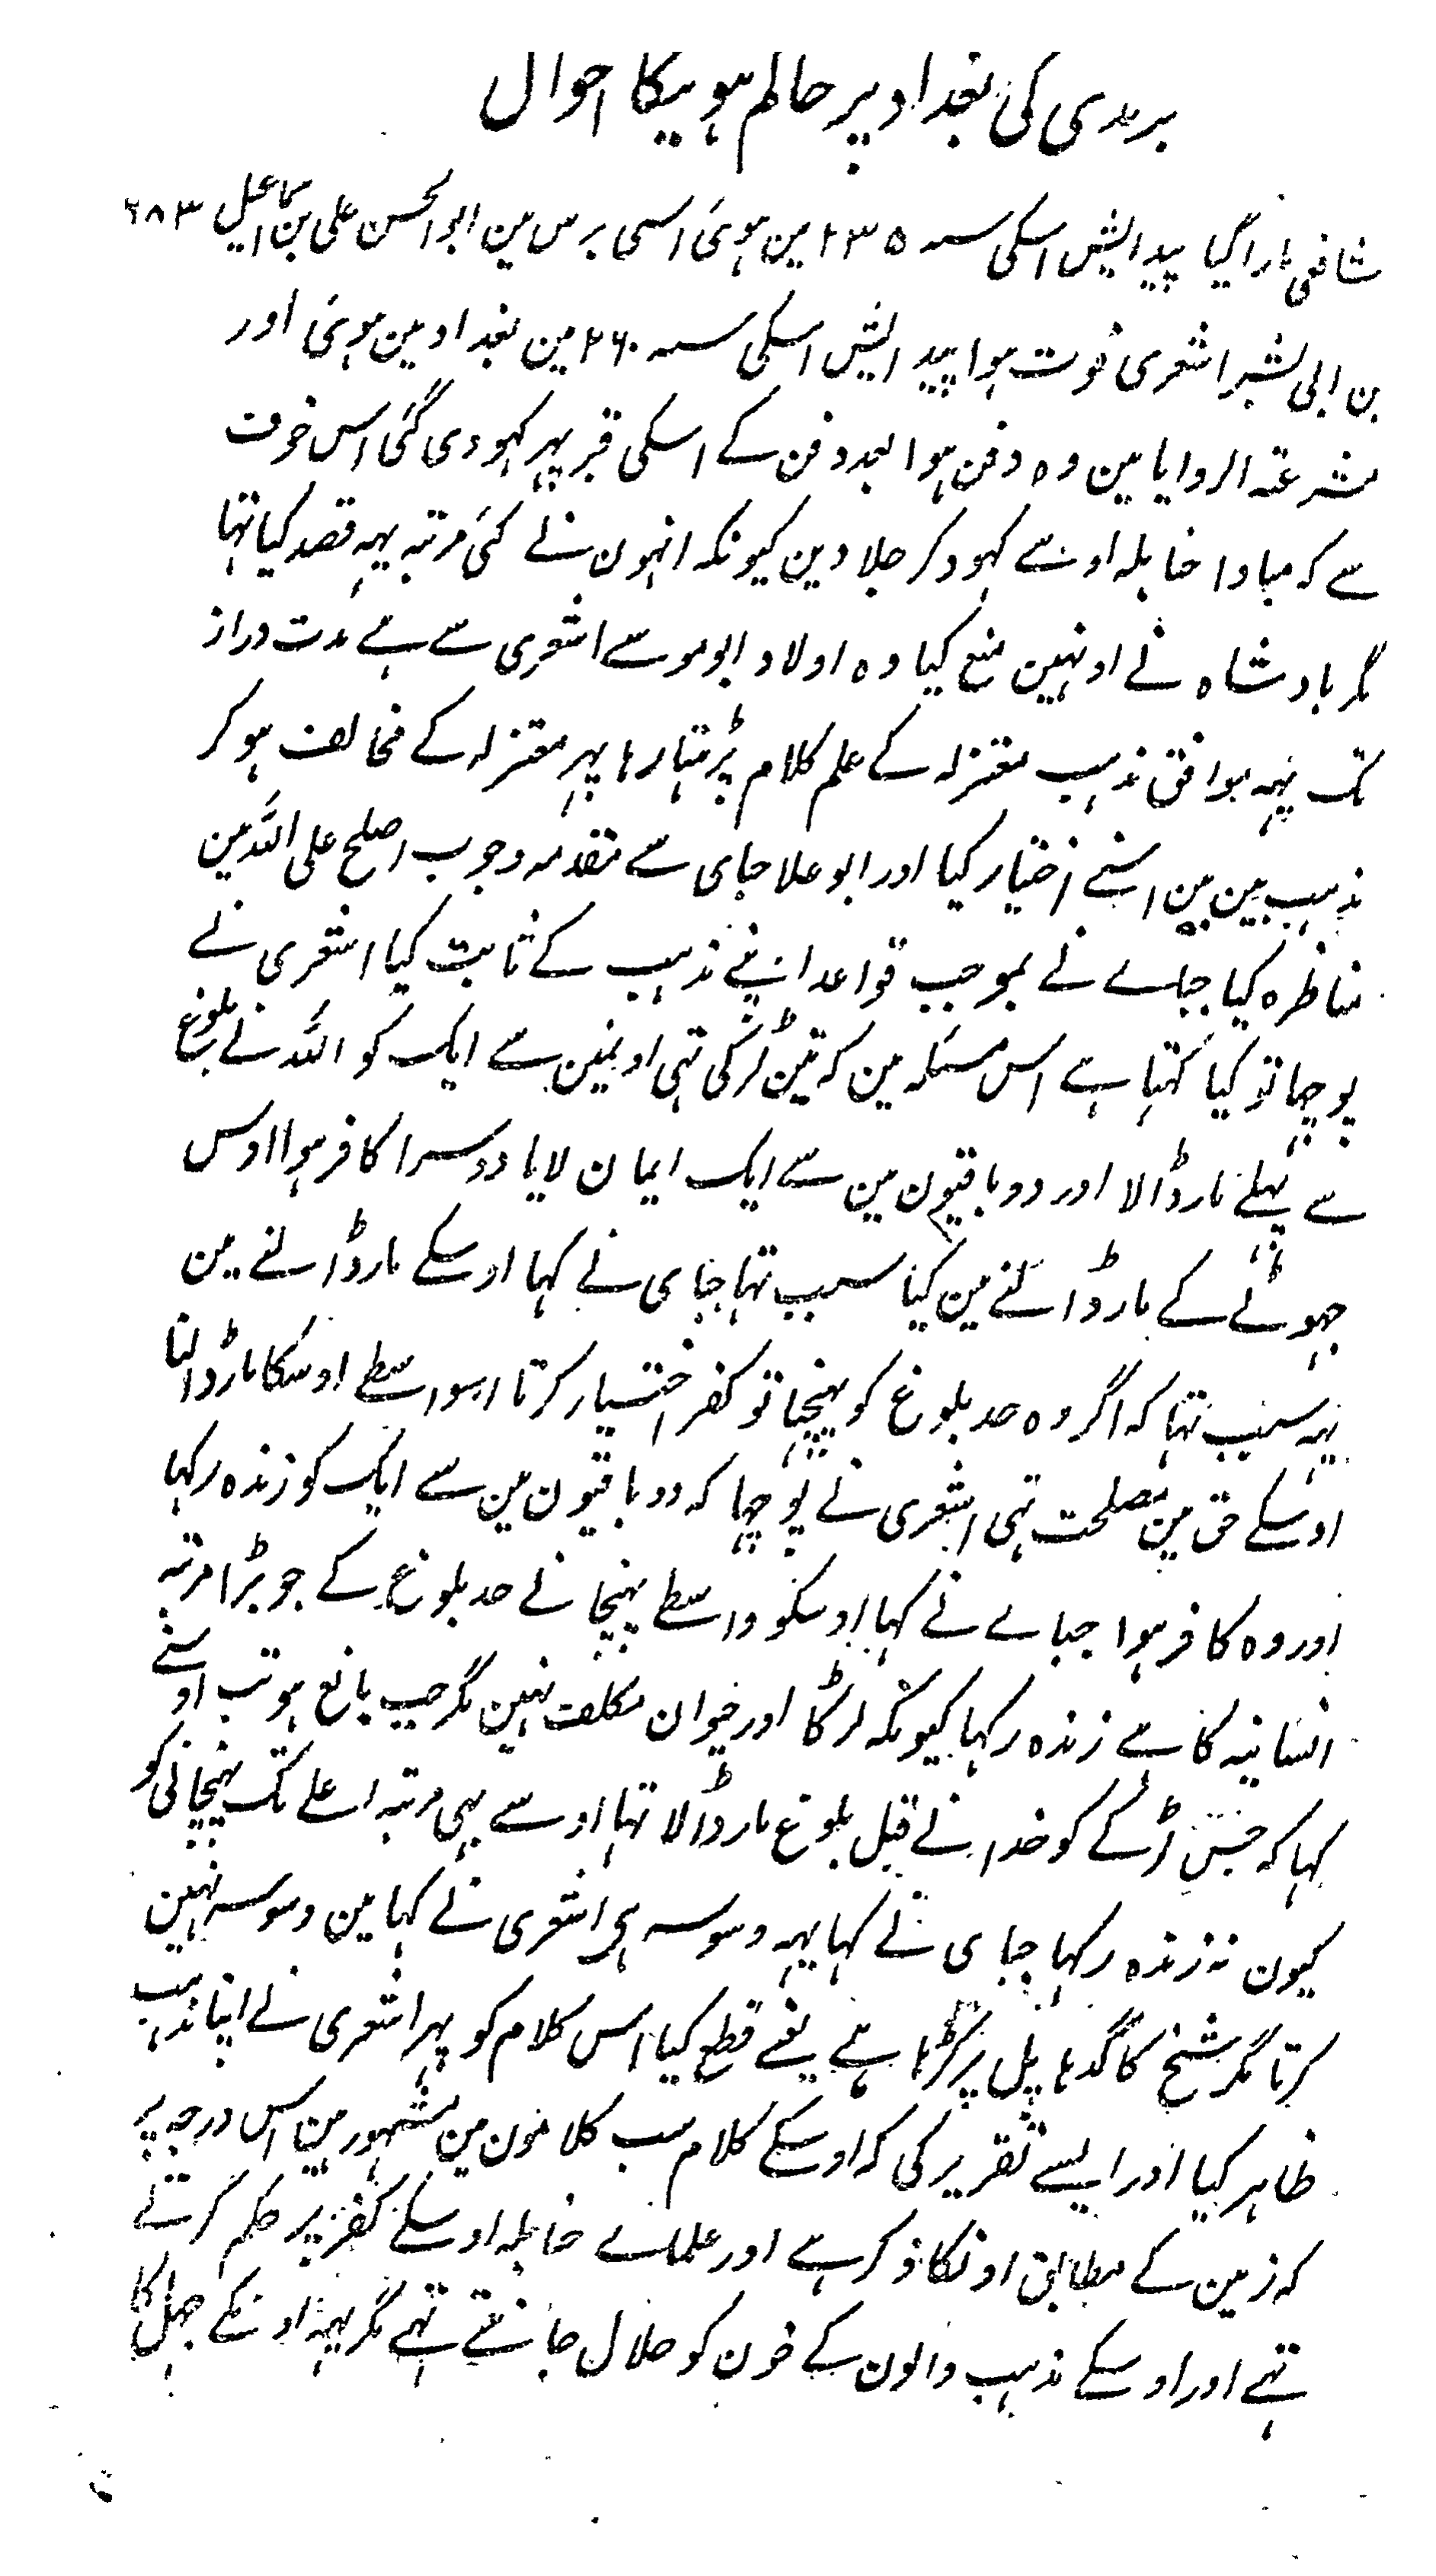 بریدی کی بغداد پر حاکم ہونیکا احوال
۲۸۳
شافعی مارا گیا پیدایش اسکی سنہ ۲۳۵ مین ہوئی اسی برس مین ابوالحسن علی بن اسماعیل
بن ابی بشر اشعری فوت ہوا پیدایش اسکی سنہ ۲۶۰ مین بغداد مین ہوئی اور
مشرعتہ الروایا مین وہ دفن ہوا بعد دفن کے اسکی قبر پہر کہودی گئی اس خوف
سے کہ مبادا حنابلہ اوسے کہود کر جلا دین کیونکہ انہون نے کئی مرتبہ یہہ قصد کیا تہا
مگر بادشاہ نے اونہین منع کیا وہ اولاد ابو موسے اشعری سے ہے مدت دراز
تک یہہ موافق مذہب معتزلہ کے علم کلام پڑہتا رہا پہر معتزلہ کے مخالف ہو کر
مذہب بین بین اسنے اختیار کیا اور ابو علا جبای سے مقدمہ وجوب اصلح علی اللہ مین
مناظرہ کیا جباے نے بموجب قواعد اپنے مذہب کے ثابت کیا اشعری نے
پوچہا تو کیا کہتا ہے اس مسئلہ مین کہ تین لڑکی تہی اونمین سے ایک کو اللہ نے بلوغ
سے پہلے مار ڈالا اور دو باقیون مین سے ایک ایمان لایا دوسرا کافر ہوا اوس
چہوٹے کے مار ڈالنے مین کیا سبب تہا جبای نے کہا اوسکے مار ڈالنے مین
یہہ سبب تہا کہ اگر وہ حد بلوغ کو پہنچتا تو کفر اختیار کرتا اسواسطے اوسکا مار ڈالنا
اوسکے حق مین مصلحت تہی اشعری نے پوچہا کہ دو باقیون مین سے ایک کو زندہ رکہا
اور وہ کافر ہوا جباے نے کہا اوسکو واسطے پہنچانے حد بلوغ کے جو بڑا مرتبہ
انسانیہ کا ہے زندہ رکہا کیونکہ لڑکا اور حیوان مکلف نہین مگر جب بالغ ہو تب اوسنے
کہا کہ جس لڑکے کو خدا نے قبل بلوغ مار ڈالا تہا اوسے بہی مرتبہ اعلے تک پہنچانی کو
کیون نہ زندہ رکہا جبای نے کہا یہہ وسوسہ ہی اشعری نے کہا مین وسوسہ نہین
کرتا مگر شیخ کا گدہا پل پر کہڑا ہے یعنے قطع کیا اس کلام کو پہر اشعری نے اپنا مذہب
ظاہر کیا اور ایسے تقریر کی کہ اوسکے کلام سب کلامون مین مشہور مین اس درجہ پر
کہ زمین کے مطابق اونکا ذکر ہے اور علماے حنابلہ اوسکے کفر پر حکم کرتے
تہے اور اوسکے مذہب والون کے خون کو حلال جانتے تہے مگر یہہ اونکے جہل کا